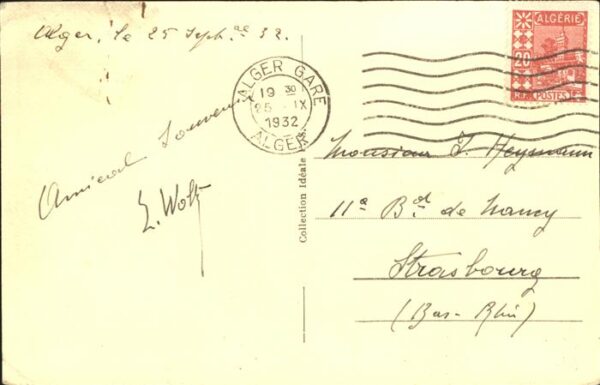 Alger, le 25 Septbre 32.
Amical Souvenir
E. Woltz
Collection Idéale P.S.
ALGER GARE
19 30
25 - IX
1932
ALGER
ALGÉRIE
20
R.F. POSTES
Monsieur J. Heymann
11a Bd. de Nancy
Strasbourg
(Bas-Rhin)